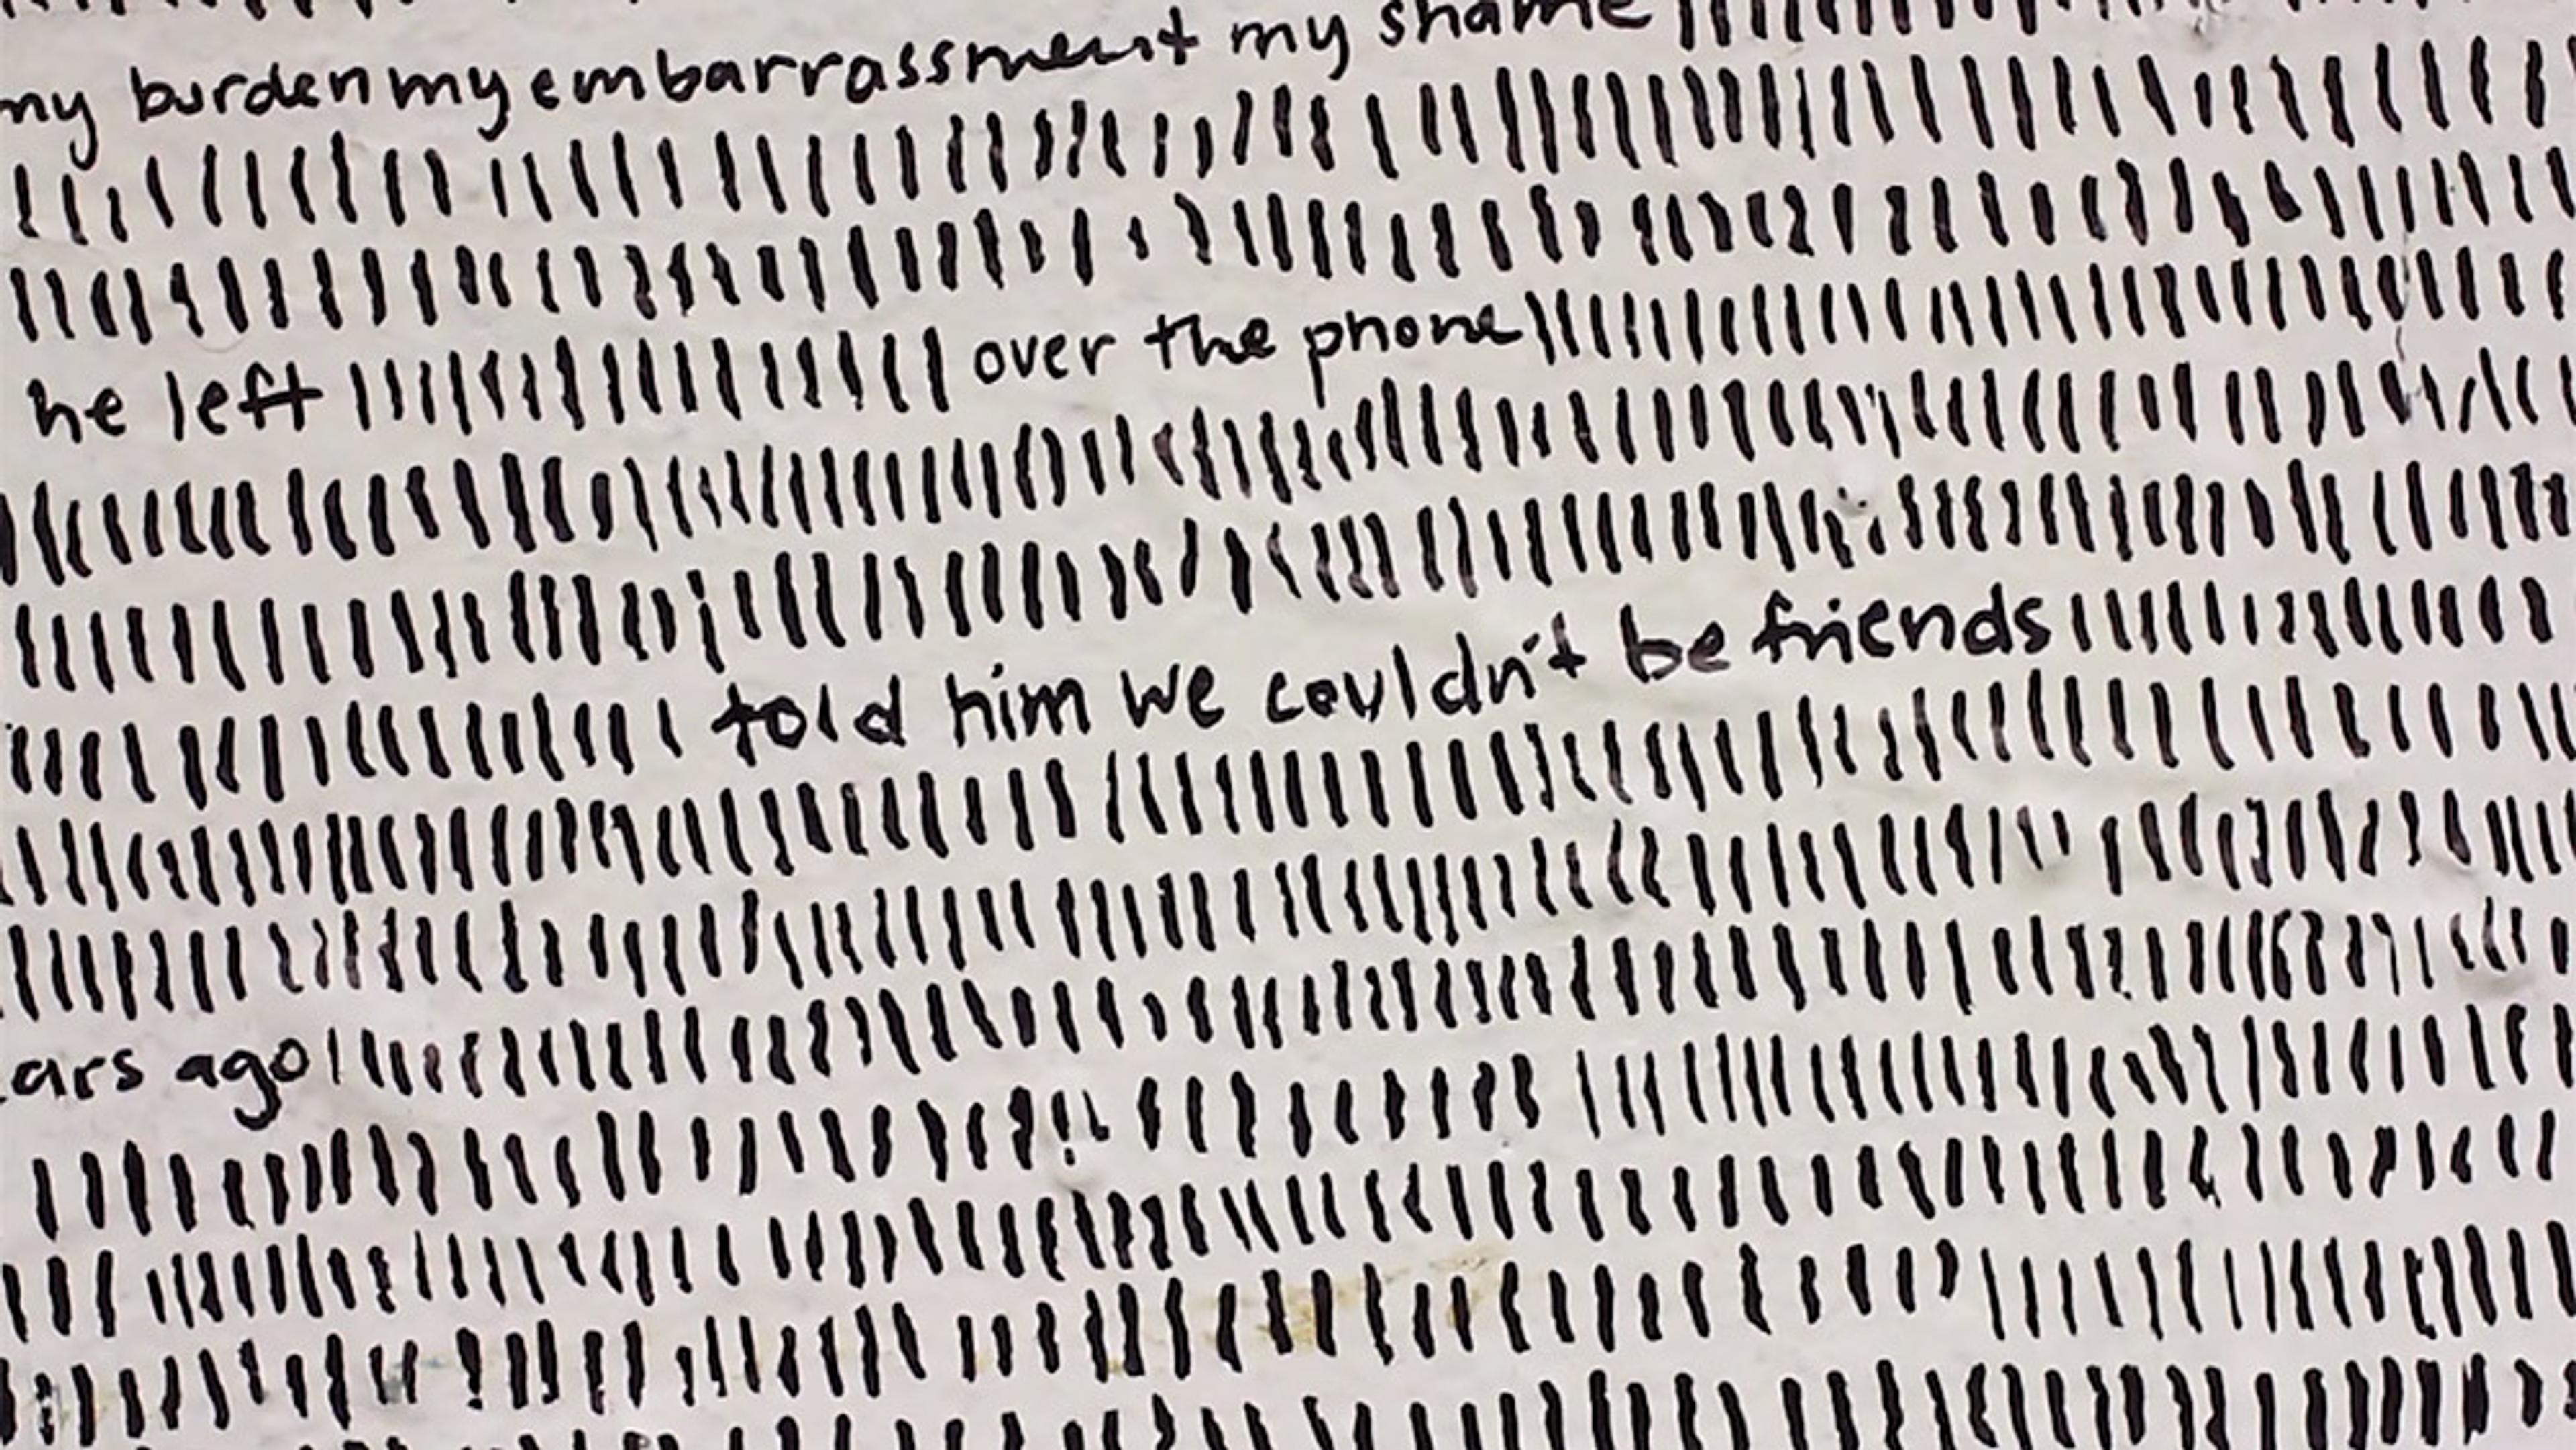 my burden my embarrassment my shame
he left over the phone
told him we couldn't be friends
ars ago